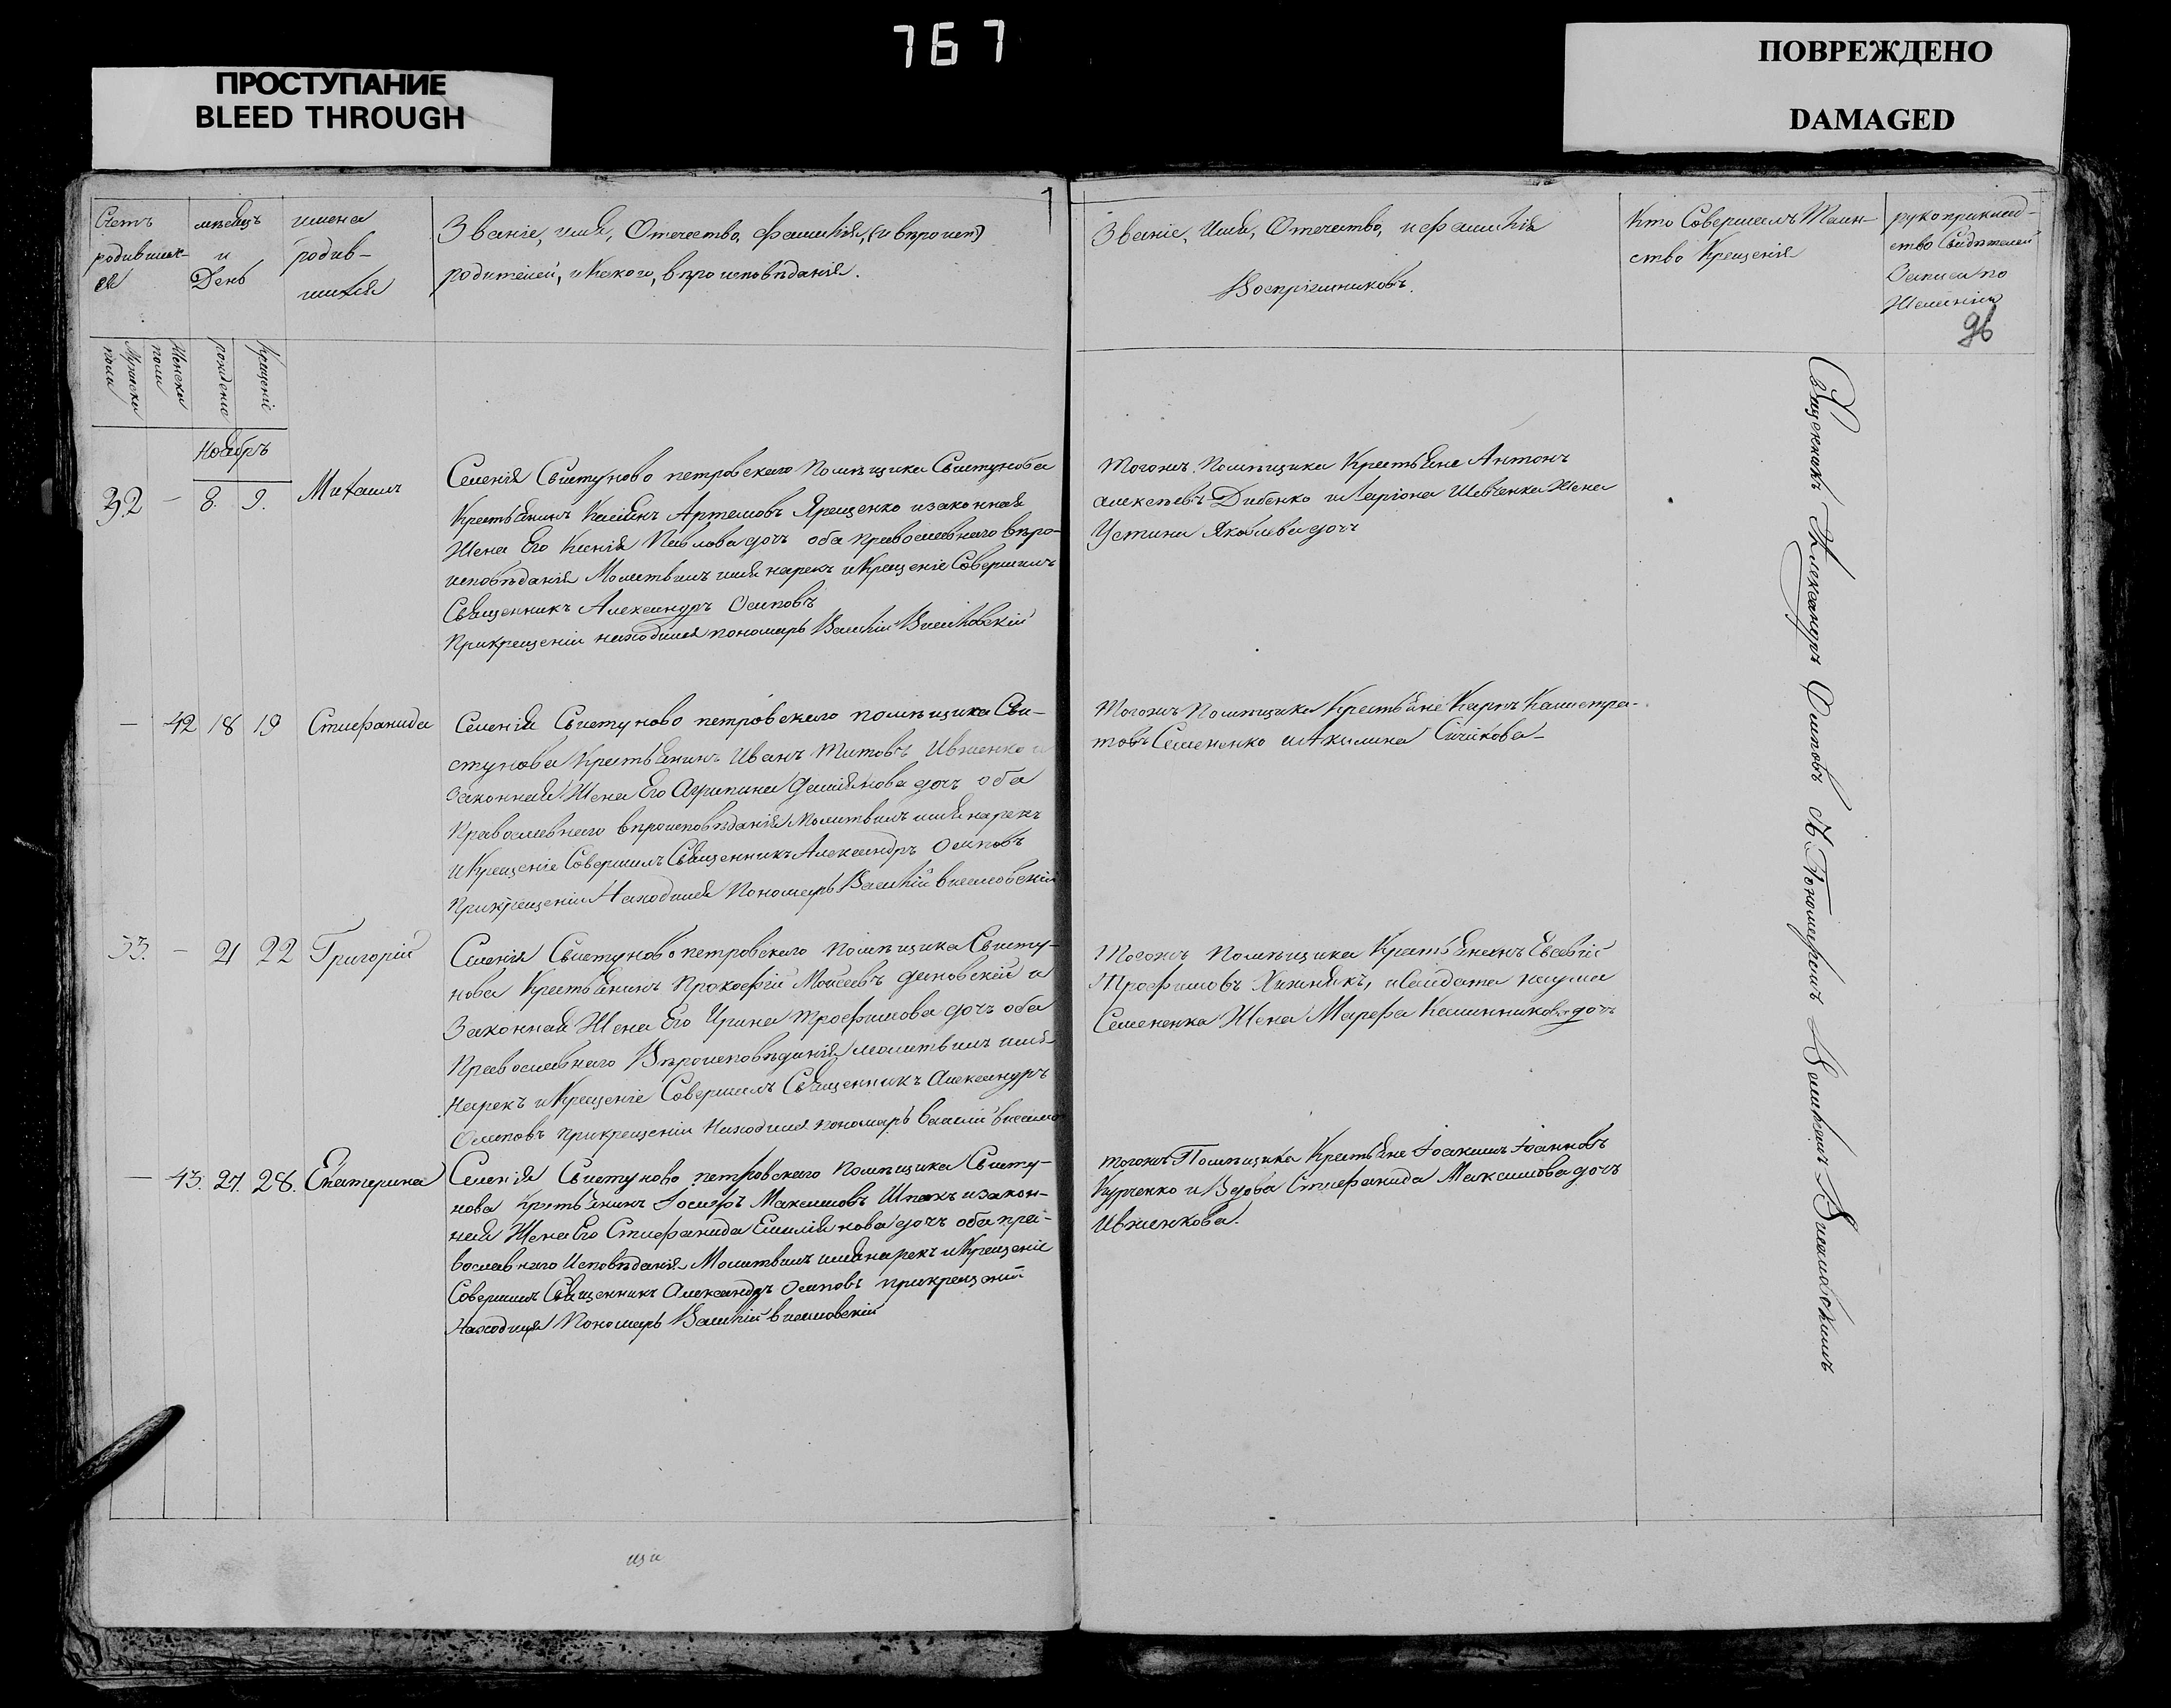 767
ПРОСТУПАНИЕ
BLEED THROUGH
ПОВРЕЖДЕНО
DAMAGED
Счетъ
родивших-
ся
мѣсяцъ
и
День
имена
родив-
шихся
Званіе, имя, Отечество, фамилія, (и вѣроисп)
родителей, и Какого, вѣроисповѣданія.
Званіе, Имя, Отечество, и фамилія
Воспріемниковъ.
Кто Совершалъ Таин-
ство Крещенія
рукоприклад-
ство Свидѣтелей
Записи по
Желанію
96
Мужеска
пола
Женска
пола
рожденіе
Крещеніе
Ноябръ
32 – 8. 9. Михаилъ
Селенія Свистуново петровскаго Помѣщика Свистунова
Крестьянинъ Касіянъ Артемовъ Ярещенко и законная
Жена Его Ксенія Павлова дочь оба православнаго вѣро-
исповѣданія Молитвилъ имя нарекъ и Крещеніе Совершилъ
Священникъ Александръ Осиповъ
Прикрещеніи находился пономарь Василій
Тогожъ Помѣщика Крестьяне Антонъ
Алексѣевъ Дибенко и Ларіона Шевченка Жена
Устина Яковлева дочь
– 42 18 19 Стефанида
Селенія Свистуново петровскаго помѣщика Сви-
стунова Крестьянинъ Иванъ Титовъ Ивженко и
Законная Жена Его Агрипина Даміянова дочь оба
Православнаго вѣроисповѣданія Молитвилъ имя нарекъ
и Крещеніе Совершилъ Священникъ Александръ Осиповъ
Прикрещеніи Находился Пономарь Василій
Тогожъ Помѣщика Крестьяне Карпъ Калистра-
товъ Семененко и Акилина Сичикова –
33. – 21 22 Григорій
Селенія Свистуново петровскаго помѣщика Свисту-
нова Крестьянинъ Прокофій Моѵсеевъ и
Законная Жена Его Ирина трофимова дочь оба
Православнаго Вѣроисповѣданія молитвилъ имя
Нарекъ и Крещеніе Совершилъ Священникъ Александръ
Осиповъ прикрещеніи Находился пономарь василій
Тогожъ Помѣщика Крестьянинъ Евсевій
Трофимовъ Хижнякъ, и Салдата наума
Семененка Жена Марфа дочь
– 43. 27. 28. Екатерина
Селенія Свистуново петровскаго Помѣщика Свисту-
нова Крестьянинъ Іосифъ Максимовъ Шпакъ и закон-
ная Жена Его Стефанида Емиліянова дочь оба пра-
вославнаго Исповѣданія Молитвилъ имя нарекъ и Крещеніе
Совершилъ Священникъ Александръ Осиповъ прикрещеній
Находился Пономарь Василій
тогожъ Помѣщика Крестьяне Іоакимъ Іоанновъ
Курченко и Вдова Стефанида Максимова дочь
Ивженкова.
Священикъ Александръ Осиповъ съ Пономаремъ